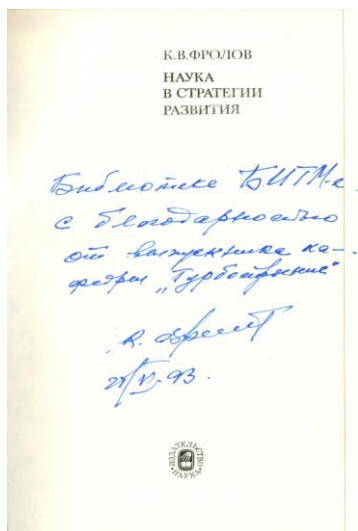 К.В.ФРОЛОВ
НАУКА
В СТРАТЕГИИ
РАЗВИТИЯ
Библиотеке БИТМ-а
с благодарностью
от выпускника ка-
федры „Турбостроение"
К. Фролов
ИЗДАТЕЛЬСТВО
НАУКА